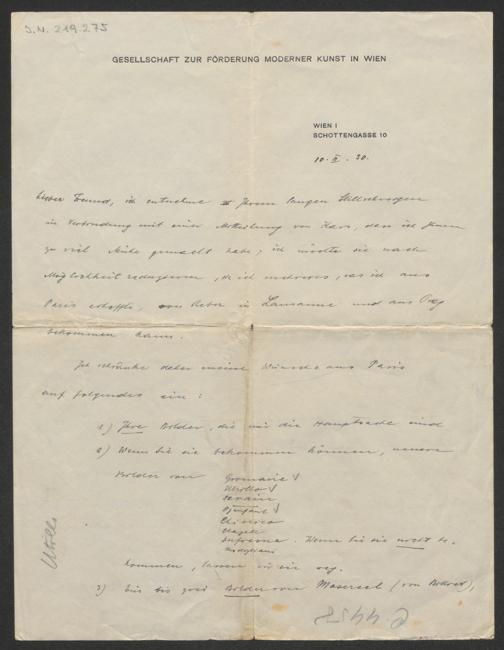 J.N. 219.275
GESELLSCHAFT ZUR FÖRDERUNG MODERNER KUNST IN WIEN
WIEN I
SCHOTTENGASSE 10
10. II. 30.
Lieber Freund, ich entnehme Ihrem langen Stillschweigen
in Verbindung mit einer Mitteilung von Hans, dass ich Ihnen
zu viel Mühe gemacht habe; ich möchte sie nach
Möglichkeit reduzieren, da ich mehreres, was ich aus
Paris erhoffte, von in Lausanne und aus
bekommen kann.
Ich schränke daher meine Wünsche aus Paris
auf folgendes ein:
1) Ihre Bilder, die mir die Hauptsache sind
2) Wenn Sie sie bekommen können, neuere
Bilder von Gromaire √
Utrillo √
Derain
Ozenfant √
Chirico
Modigliani
Wenn Sie sie nicht be-
kommen, lassen wir sie weg.
3) Ein bis zwei Bilder von Masereel (von
Utrillo